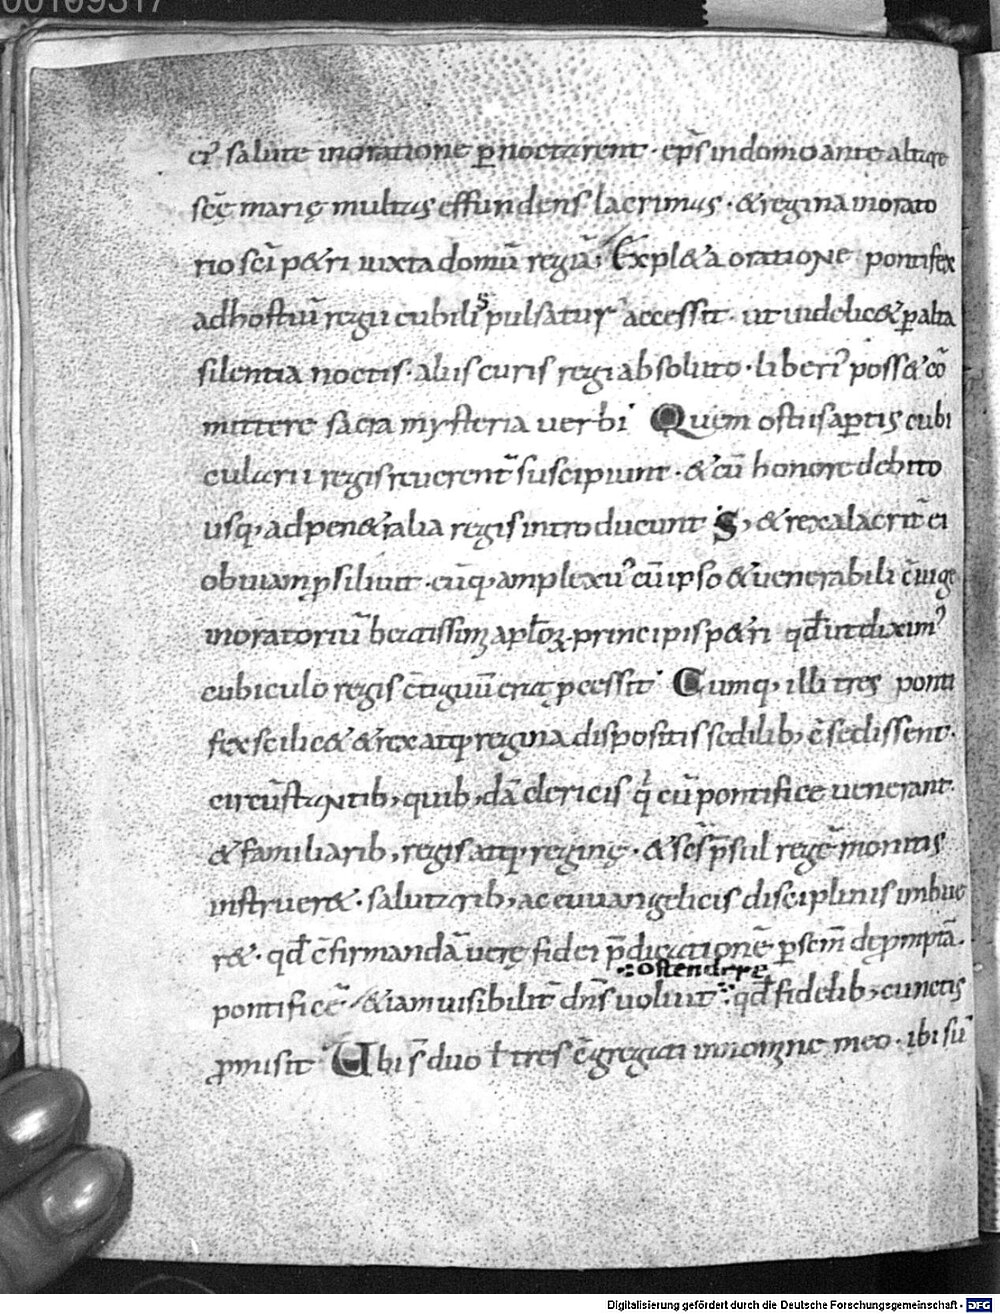 00109317
er᷒ salute inoratione ꝑnoctarent · ep̄s indomo ante altare
sc̄ę marię multas effundens lacrimas · &regina inorato
rio sc̄i p&ri iuxta domū regiā; Expl&a oratione pontifex
adhostiū regii cubilis pulsaturꝰ accessit · ut uidelic& ꝑ alta
silentia noctis · aliis curis regi absoluto · liberiꝰ poss& cō
mittere sacra mysteria uerbi Quem ostiis aptis cubi
cularii regis reuerent̄ suscipiunt · & cū honore debito
usq; ad pen&ralia regis introducunt S; & rex alacrit̄ ei
obuiam ꝓsiliuit · cūq; amplexuꝰ cū ipso & uenerabili c̄iuge
inoratoriū beatissimi aplōꝝ principis p&ri qđ ut diximꝰ
cubiculo regis c̄tiguū erat ꝓcessit Cumq; illi tres ponti
fex scilic& & rex atq; regina dispositis sedilib; c̄sedissent ·
circūstantib; quib;dā clericis q̇ cū pontifice uenerant ·
& familiarib; regis atq; reginę · & sc̄s p̄sul regē monitis
instruer& · salutarib; ac euuangelicis disciplinis imbue
r& · qđ c̄firmandā uerę fidei p̄dicationē ꝑ semēt deprompta
ostendere
pontificē &iam uisibilit̄ dn̄s uoluit qđ fidelib; cunctis
ꝓmisit Ubi s̄ duo ł tres c̄gregati innomine meo · ibi sū
Digitalisierung gefördert durch die Deutsche Forschungsgemeinschaft - DFG